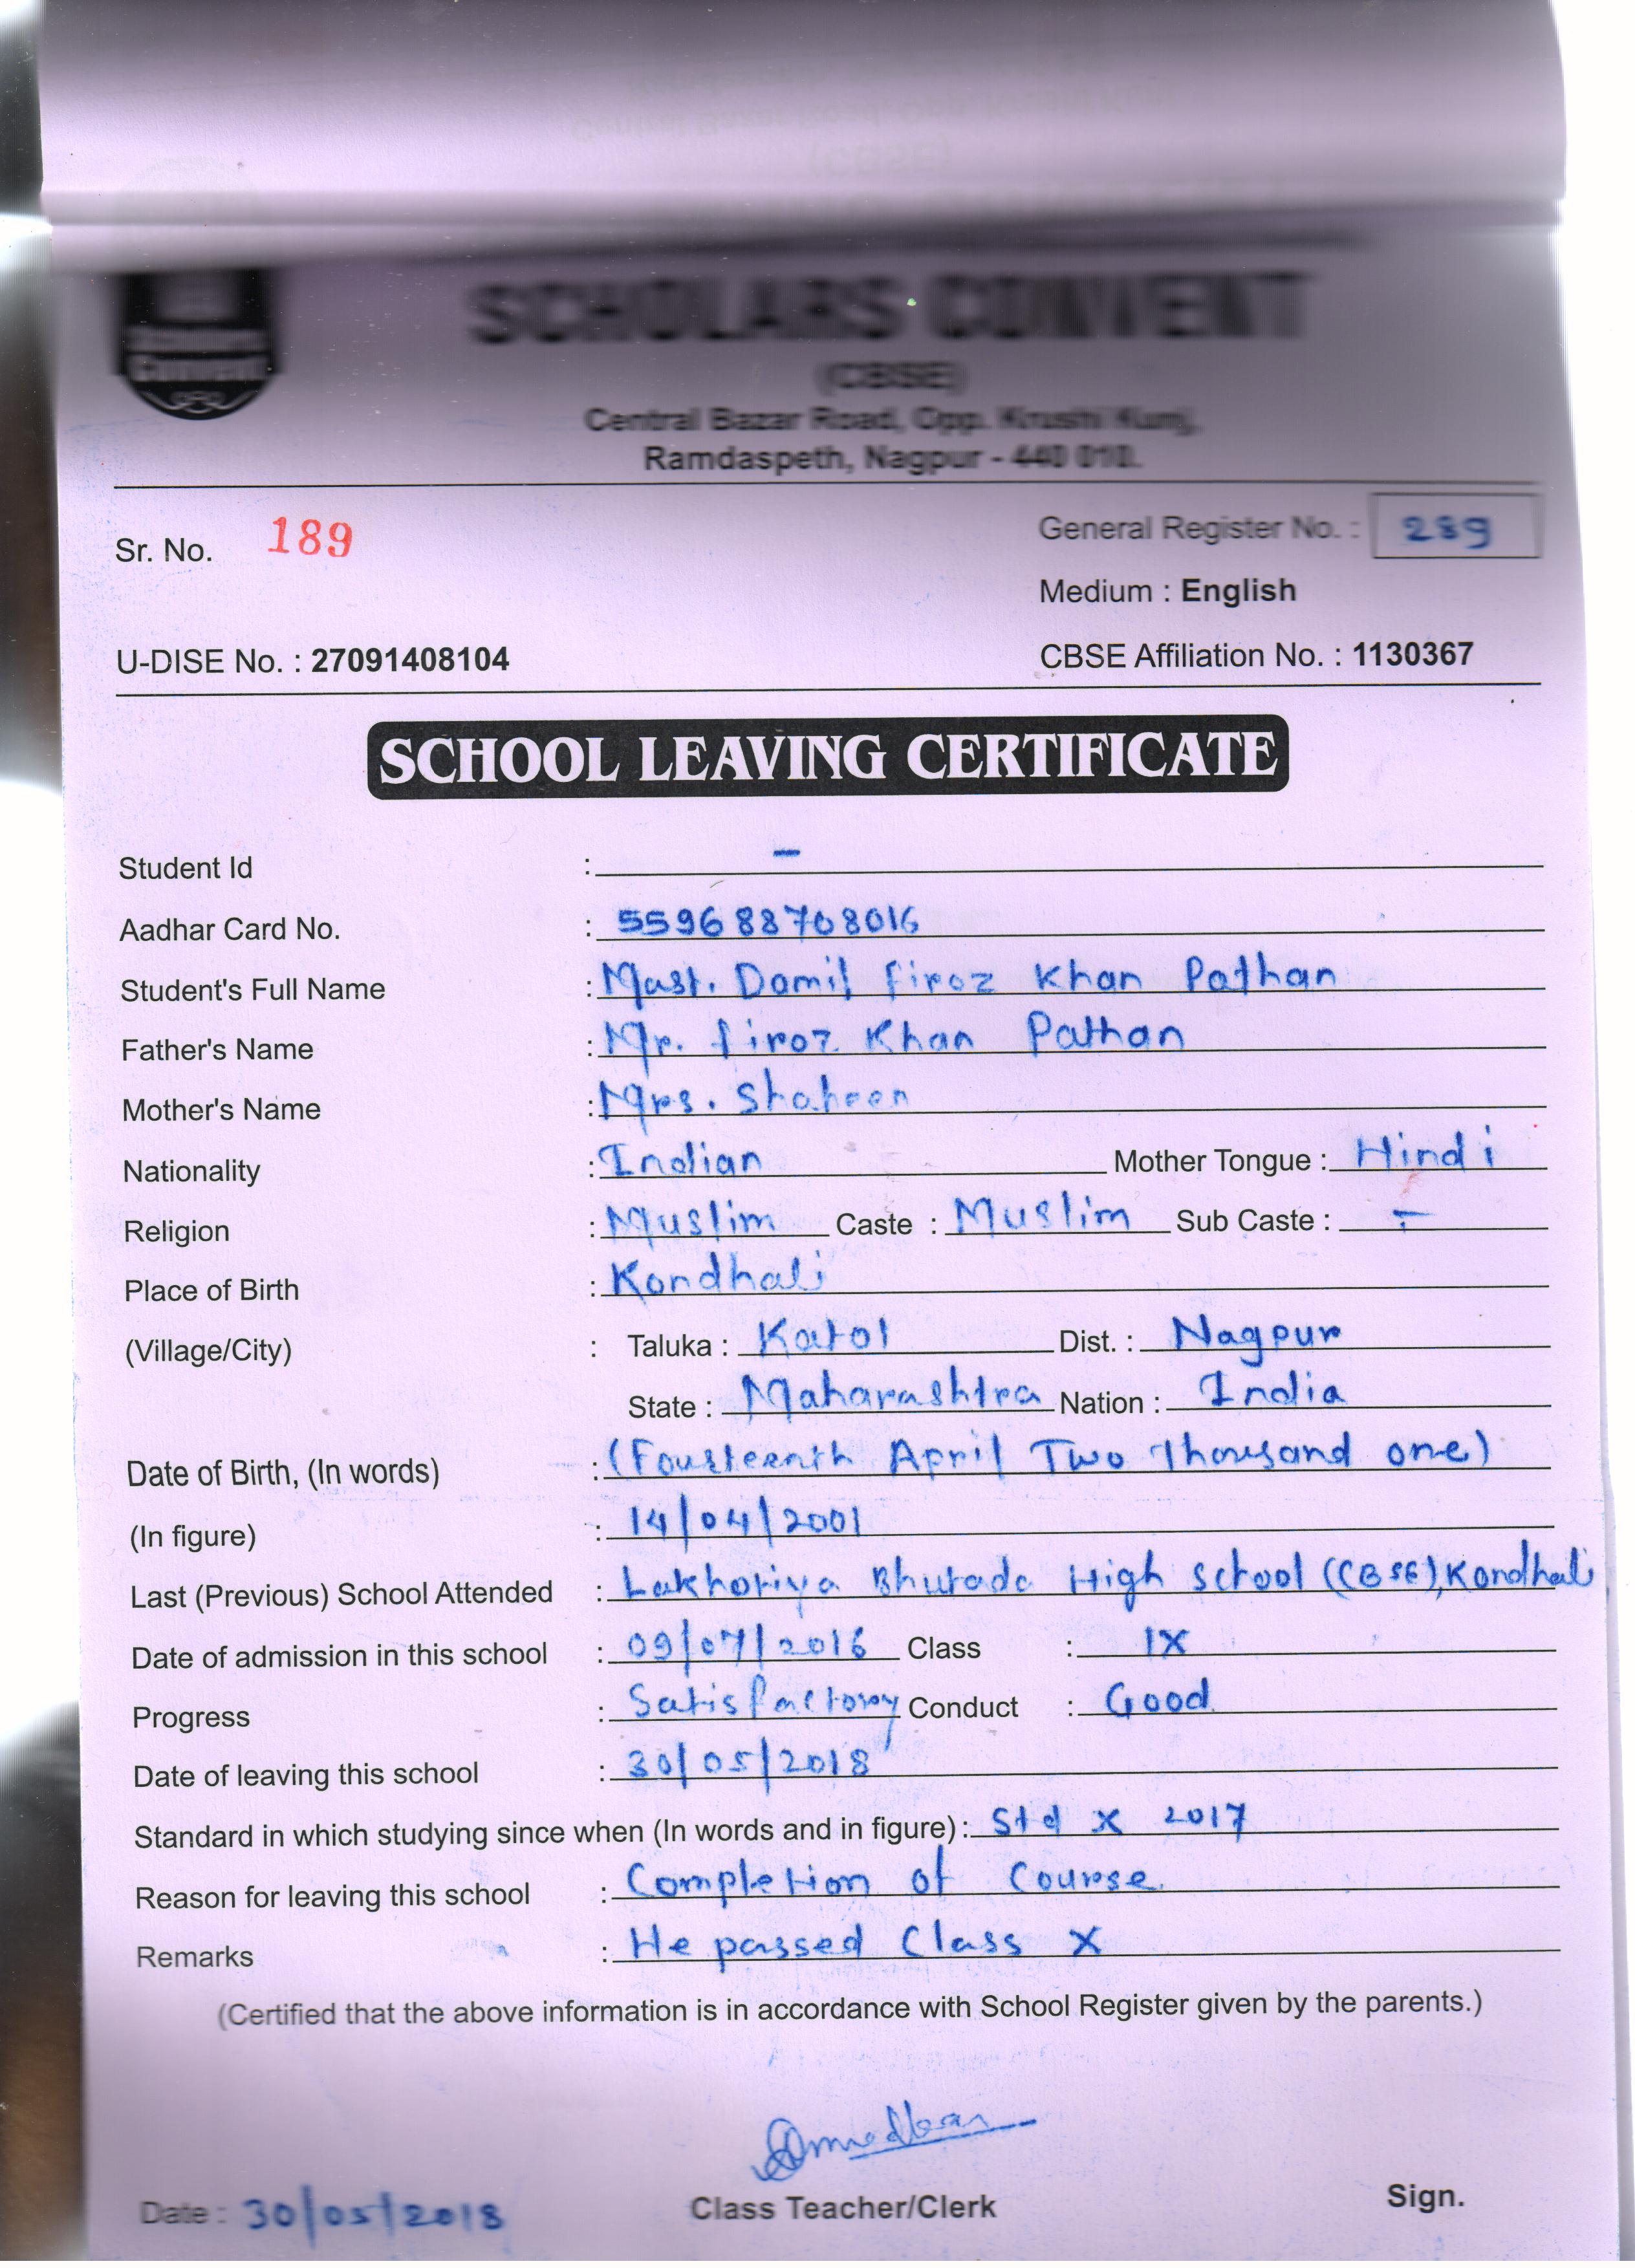 SCHOLARS CONVENT
(CBSE)
Central Bazar Road, Opp. Krushi Kunj,
Ramdaspeth, Nagpur - 440 010.
Sr. No. 189
General Register No. : 289
Medium : English
U-DISE No. : 27091408104
CBSE Affiliation No. : 1130367
SCHOOL LEAVING CERTIFICATE
Student Id : –
Aadhar Card No. : 559688708016
Student's Full Name : Mast. Damil Firoz Khan Pathan
Father's Name : Mr. firoz Khan Pathan
Mother's Name : Mrs. Shaheen
Nationality : Indian Mother Tongue : Hindi
Religion : Muslim Caste : Muslim Sub Caste : -
Place of Birth : Kondhali
(Village/City) : Taluka : Katol Dist. : Nagpur
State : Maharashtra Nation : India
Date of Birth, (In words) : (Fourteenth April Two Thousand one)
(In figure) : 14/04/2001
Last (Previous) School Attended : Lakhotiya Bhutada High School (CBSE), Kondhali
Date of admission in this school : 09/07/2016 Class : IX
Progress : Satisfactory Conduct : Good
Date of leaving this school : 30/05/2018
Standard in which studying since when (In words and in figure) : Std X 2017
Reason for leaving this school : Completion of Course.
Remarks : He passed Class X
(Certified that the above information is in accordance with School Register given by the parents.)
Date : 30/05/2018 Class Teacher/Clerk Sign.